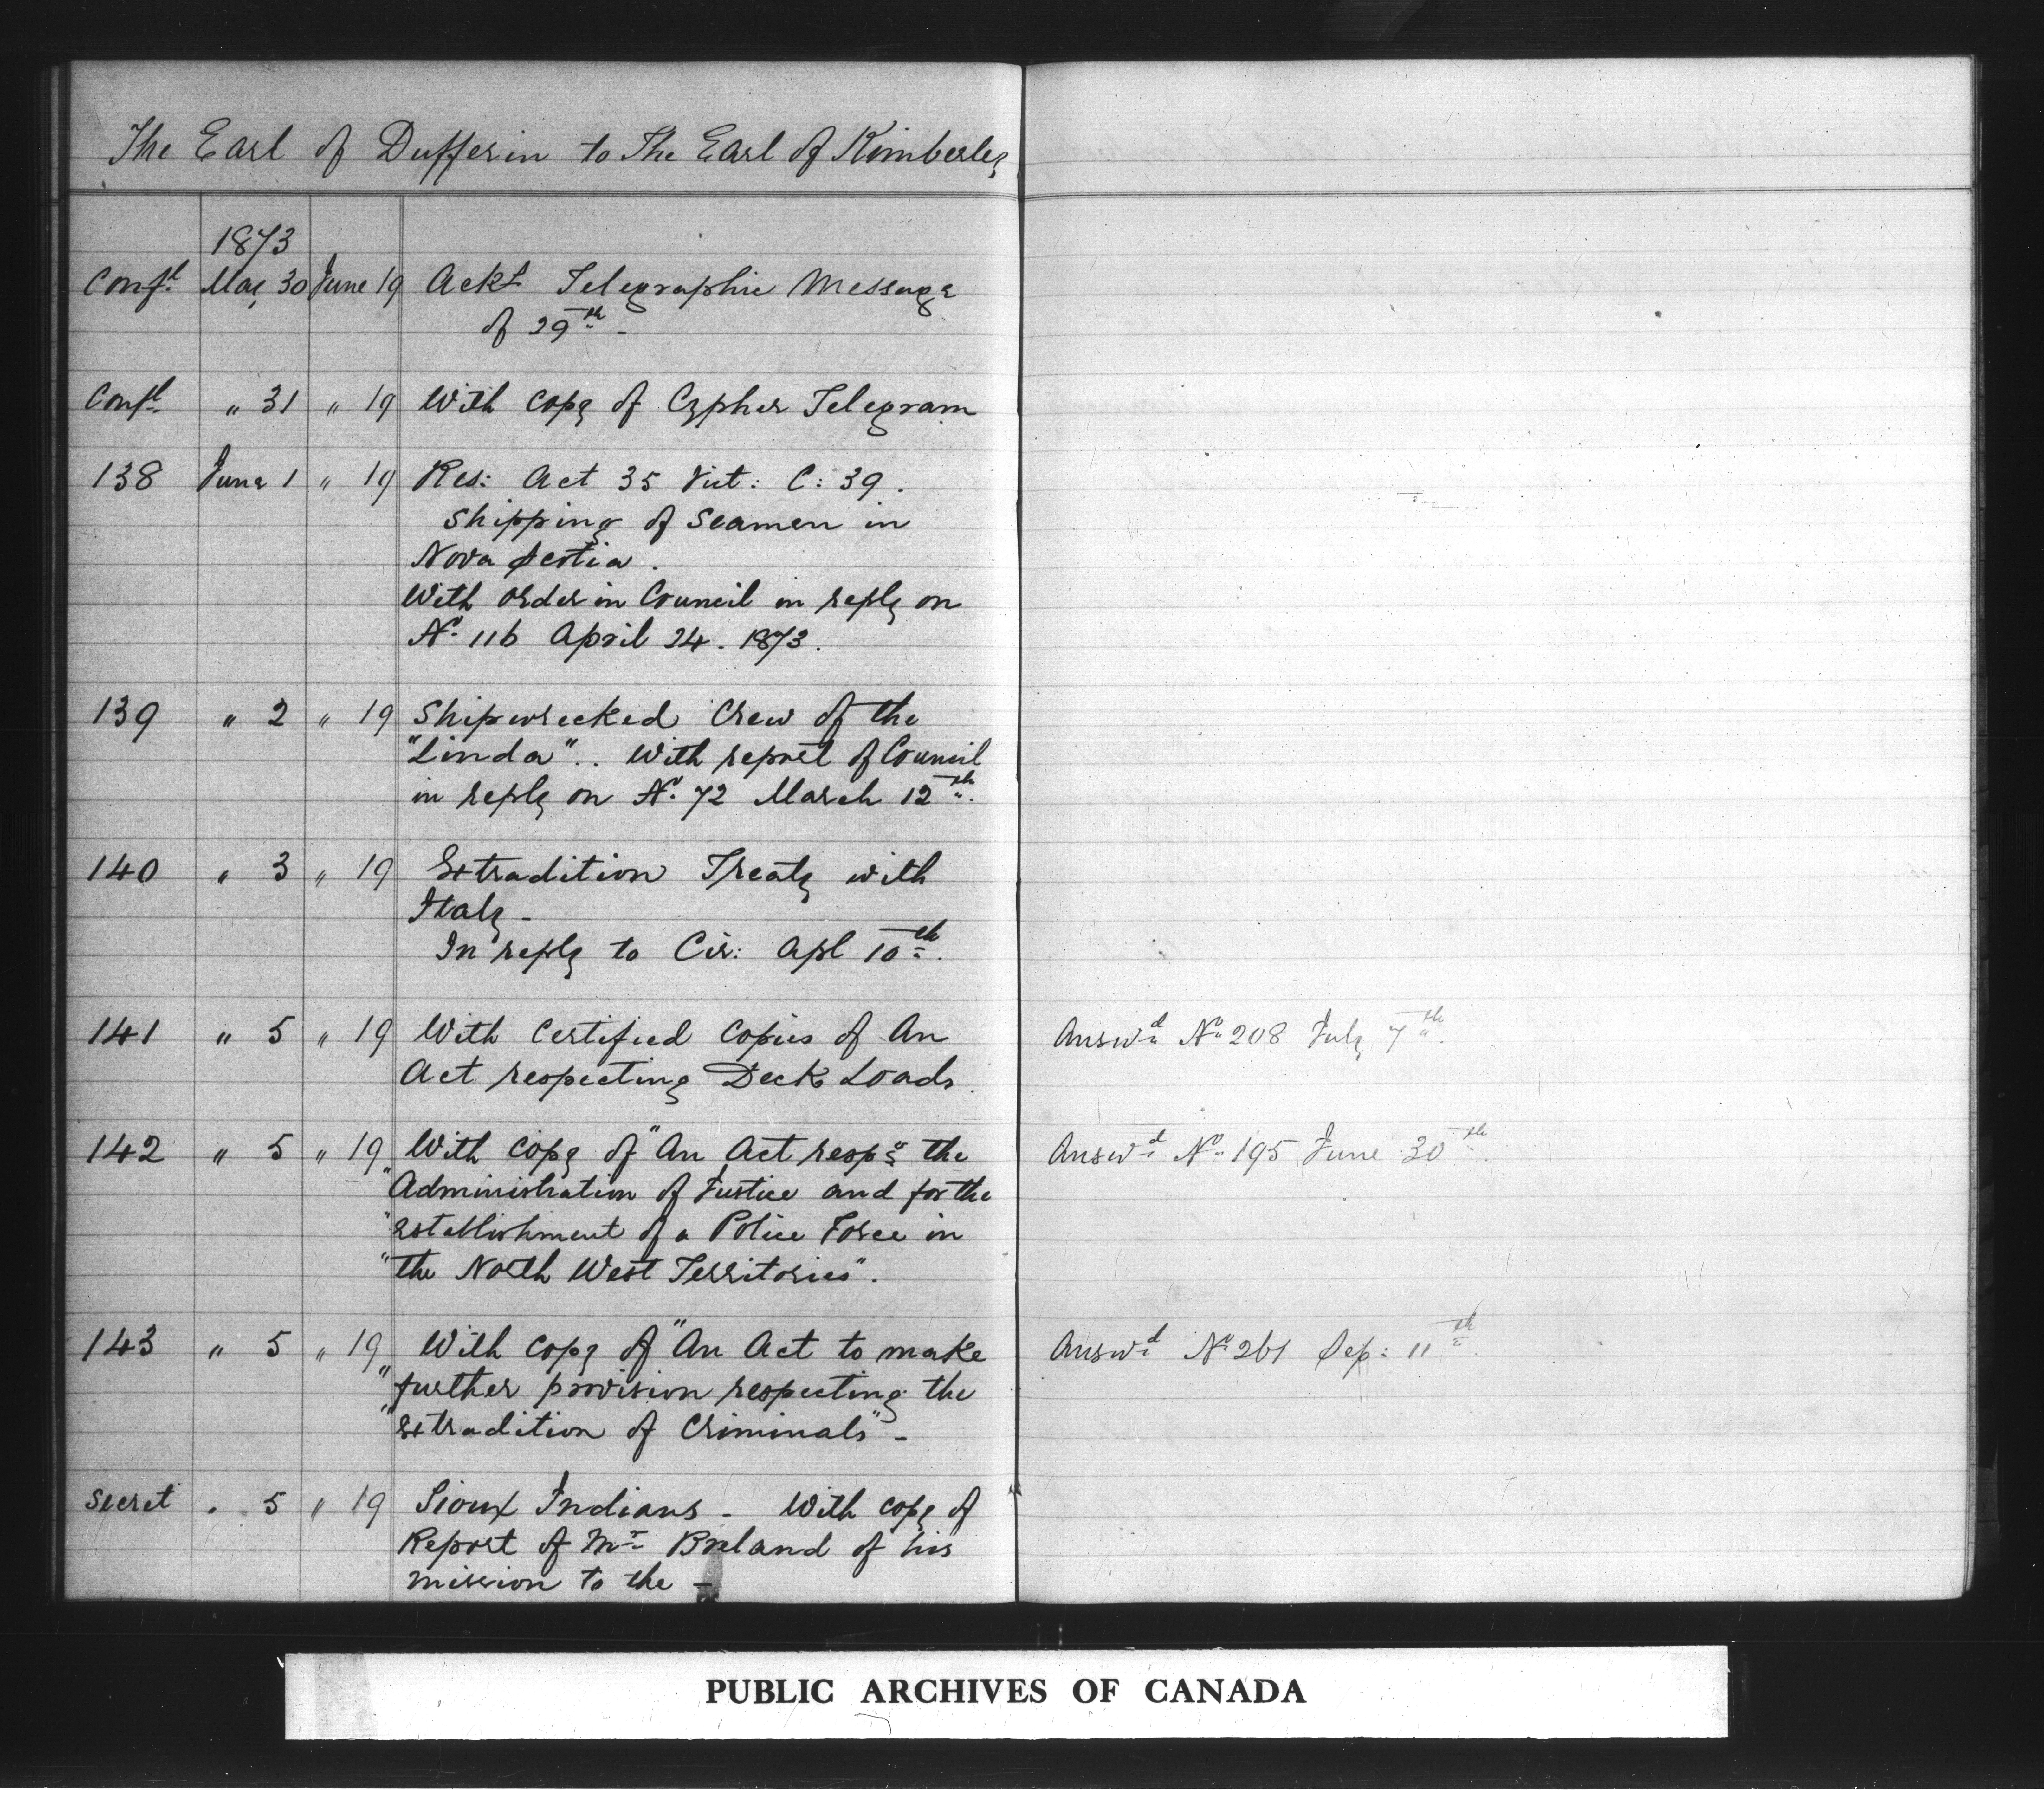 The Earl of Dufferin to The Earl of Kimberley
1873
Conf.l May 30 June 19 Ackt Telegraphic Message
of 29th -
Conf.l " 31 " 19 With copy of Cypher Telegram
138 June 1 " 19 Res: Act 35 Vict: C: 39.
Shipping of Seamen in
Nova Scotia.
With order in Council in reply on
No. 116 April 24. 1873.
139 " 2 " 19 Shipwrecked Crew of the
"Linda".. With report of Council
in reply on No. 72 March 12th.
140 " 3 " 19 Extradition Treaty with
Italy -
In reply to Cir: Apl 10th.
141 " 5 " 19 With Certified Copies of An Answ.d No 208 July 7th.
Act respecting Deck Loads.
142 " 5 " 19 With copy of "An Act resp.g the Answ.d No. 195 June 30th.
"Administration of Justice and for the
"establishment of a Police Force in
"the North West Territories".
143 " 5 " 19 With copy of "An Act to make Answ.d No 261 Sep: 11th.
"further provision respecting the
"extradition of Criminals" -
Secret " 5 " 19 Sioux Indians - With copy of
Report of Mr. Breland of his
mission to the -
PUBLIC ARCHIVES OF CANADA